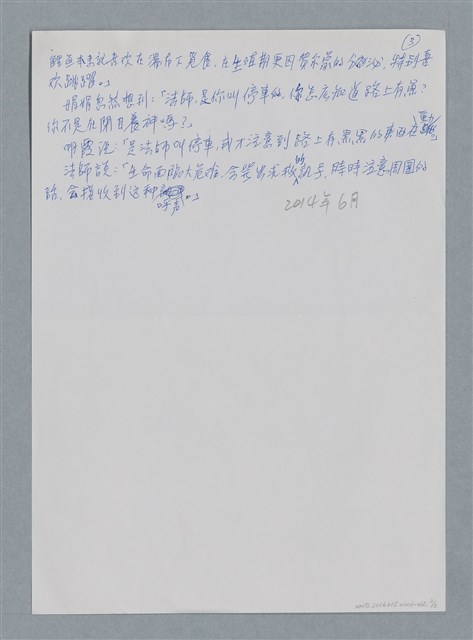 ③
鮭魚本來就喜歡在瀑布下覓食，在生殖期更因荷尔蒙的分泌，特别喜
欢跳躍。」
娟娟忽然想到：「法師，是你叫停車的，你怎么知道路上有龜？
你不是在閉目養神嗎？」
明霞说：「是法師叫停車，我才注意到路上有黑黑的東西在動」
法師說：「生命面臨大危难，会發出求救的訊号，隨時注意周圍的
話，会接收到这种呼声。」
2014年6月